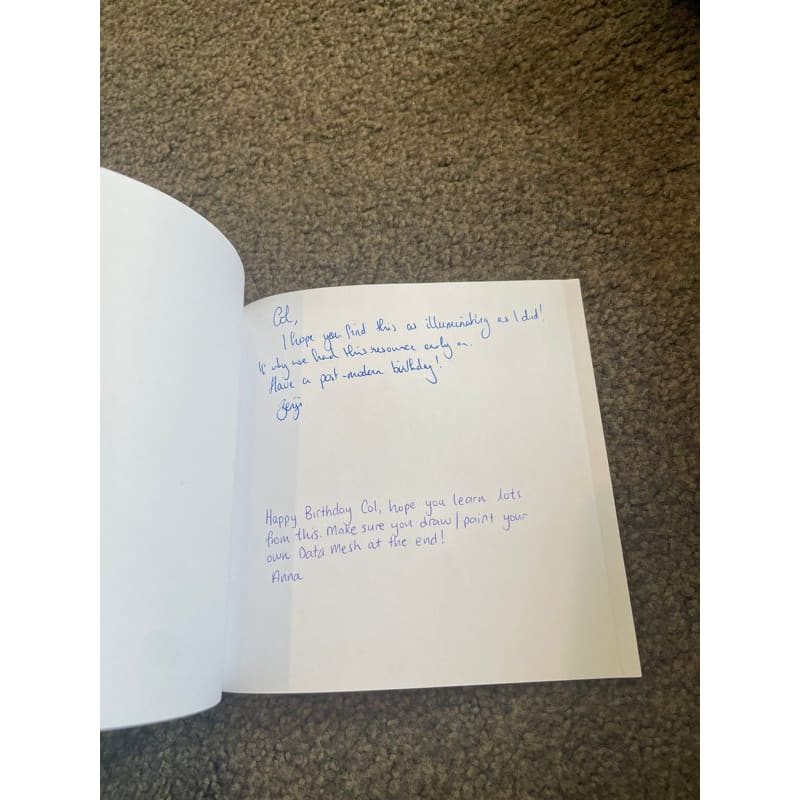 Col,
I hope you find this as illuminating as I did!
If only we had this resource early on.
Have a post-modern birthday!
Benji
Happy Birthday Col, hope you learn lots
from this. Make sure you draw/paint your
own Data Mesh at the end!
Anna